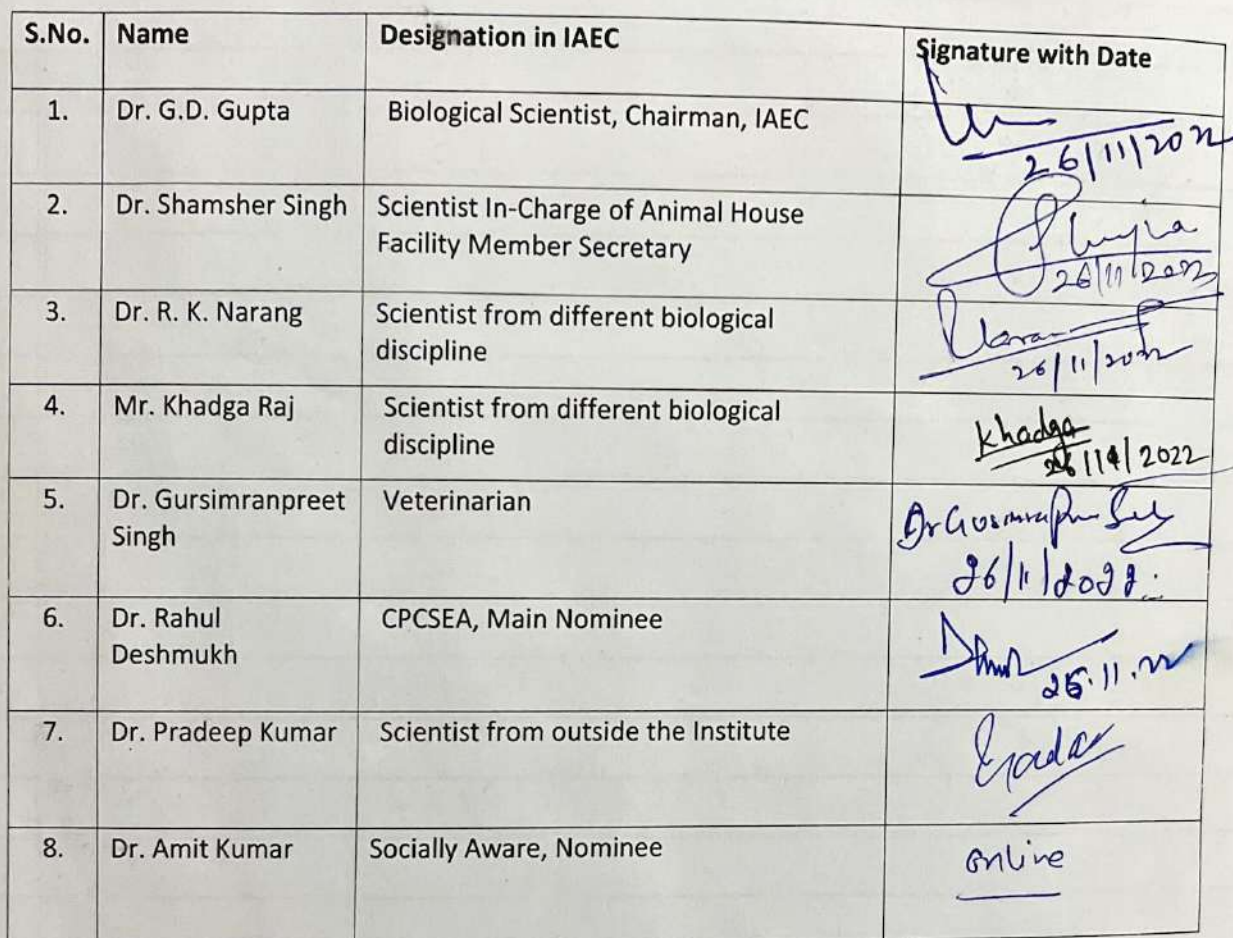 S.No. Name Designation in IAEC Signature with Date
1. Dr. G.D. Gupta Biological Scientist, Chairman, IAEC
26/11/2022
2. Dr. Shamsher Singh Scientist In-Charge of Animal House
Facility Member Secretary
26/11/2022
3. Dr. R. K. Narang Scientist from different biological
discipline
26/11/2022
4. Mr. Khadga Raj Scientist from different biological
discipline
Khadga
26/11/2022
5. Dr. Gursimranpreet Veterinarian
Singh
26/11/2022
6. Dr. Rahul CPCSEA, Main Nominee
Deshmukh
7. Dr. Pradeep Kumar Scientist from outside the Institute
8. Dr. Amit Kumar Socially Aware, Nominee
online